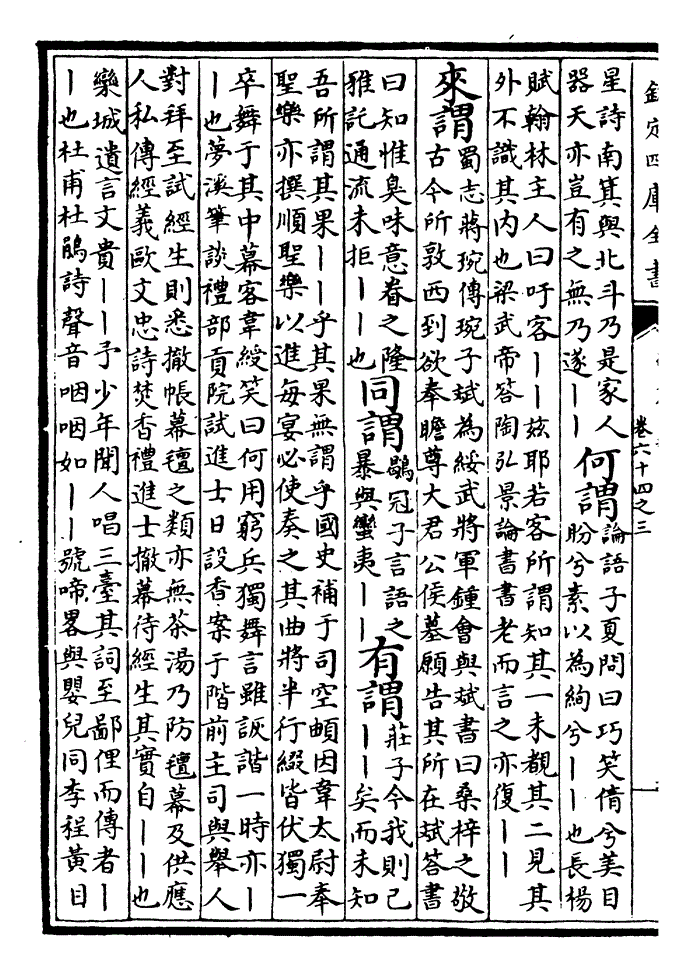 欽定四庫全書
卷六十四之三
星詩南箕與北斗乃是家人
器天亦豈有之無乃遂丨丨
何謂
論語子夏問曰巧笑倩兮美目
盼兮素以為絢兮丨丨也長楊
賦翰林主人曰吁客丨丨兹耶若客所謂知其一未覩其二見其
外不識其内也梁武帝答陶弘景論書書老而言之亦復丨丨
來謂
蜀志蔣琬傳琬子斌為綏武將軍鍾會與斌書曰桑梓之敬
古今所敦西到欲奉瞻尊大君公侯墓願告其所在斌答書
曰知惟臭味意眷之隆
雅託通流未拒丨丨也
同謂
鶡冠子言語之
暴與蠻夷丨丨
有謂
莊子今我則已
丨丨矣而未知
吾所謂其果丨丨乎其果無謂乎國史補于司空頔因韋太尉奉
聖樂亦撰順聖樂以進每宴必使奏之其曲將半行綴皆伏獨一
卒舞于其中幕客韋綬笑曰何用窮兵獨舞言雖詼諧一時亦丨
丨也夢溪筆談禮部貢院試進士日設香案于階前主司與舉人
對拜至試經生則悉撤帳幕氊之類亦無茶湯乃防氊幕及供應
人私傳經義歐文忠詩焚香禮進士撤幕待經生其實自丨丨也
欒城遺言文貴丨丨予少年聞人唱三臺其詞至鄙俚而傳者丨
丨也杜甫杜鵑詩聲音咽咽如丨丨號啼畧與嬰兒同李程黄目